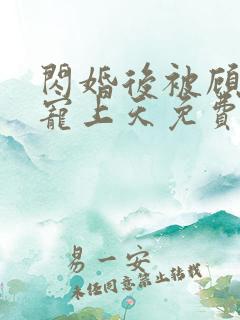 閃婚後被顧
寵上天免費
易一安
未經同意禁止轉載